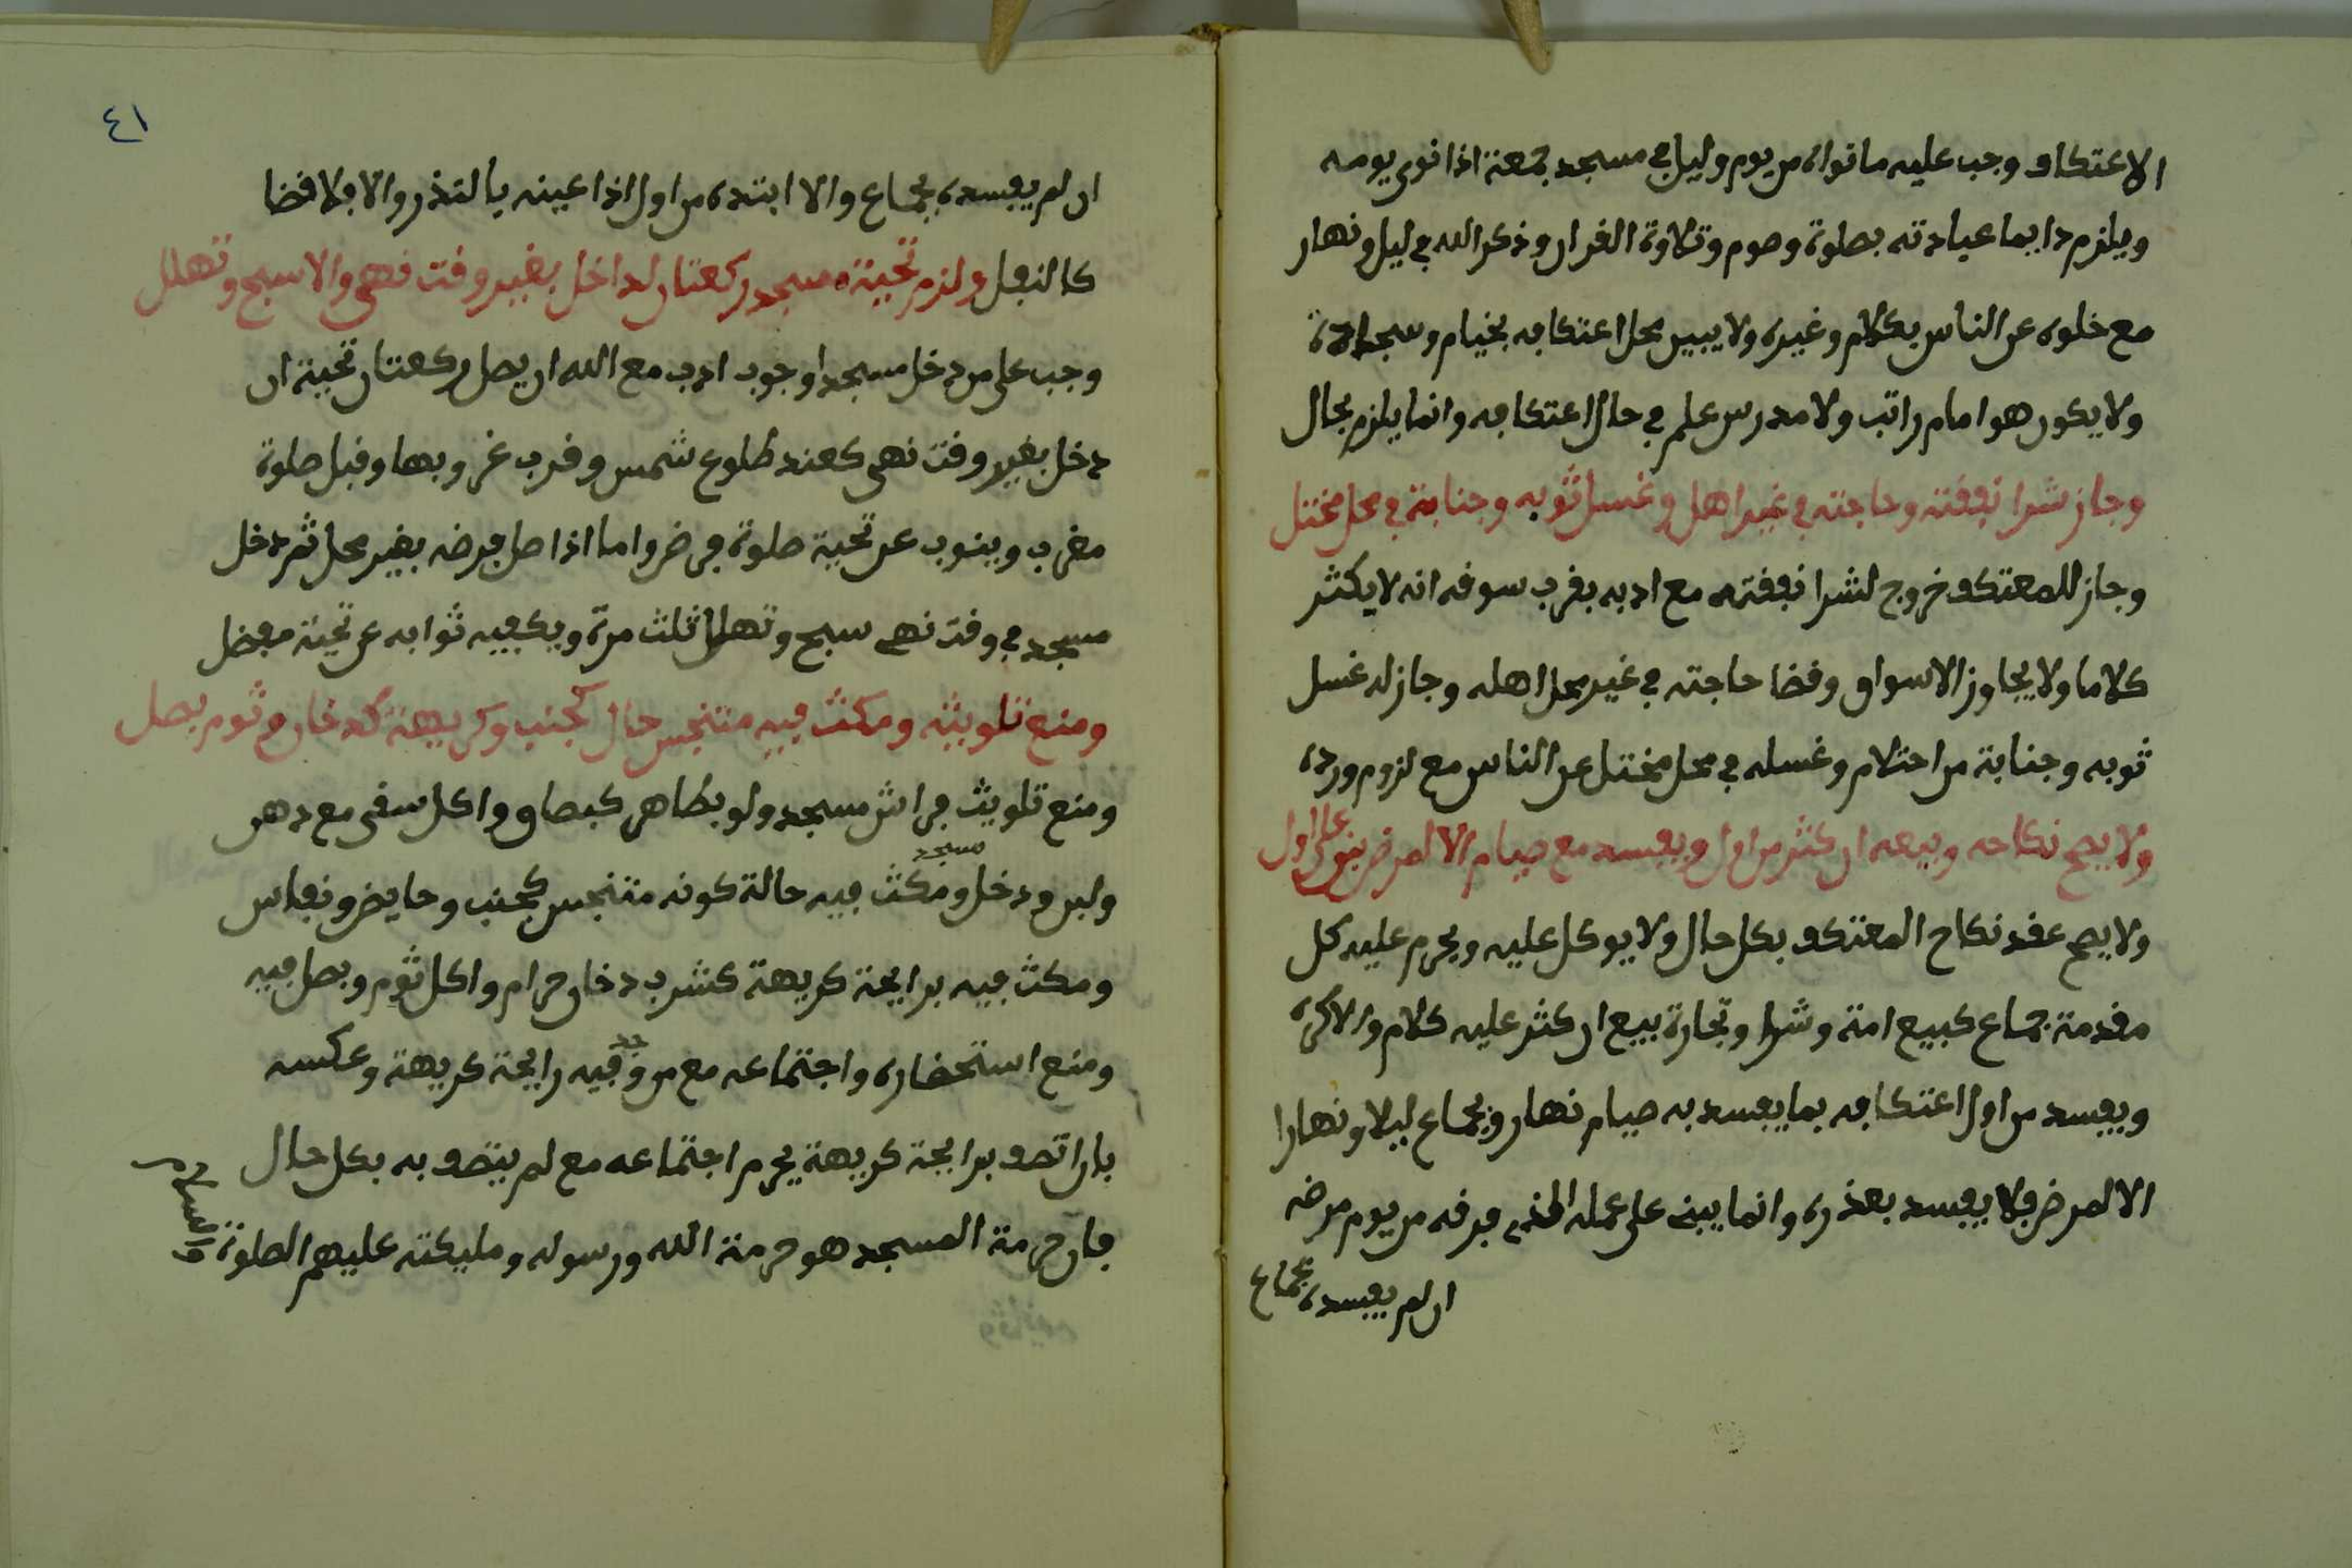 الاعتكاف وجب عليه ما نواه من يوم وليل في مسجد جمعة اذا نوى يومه
ويلزم دايما عبادته بصلوة وصوم وتلاوة القران وذكر الله في ليل ونهار
مع خلوه عن الناس بكلام وغيره ولا يبين محل اعتكافه بخيام وسجادة
ولا يكون هو امام راتب ولا مدرس علم في حال اعتكافه وانما يلزم بحال
وجاز شرا نفقته وحاجته في غير اهل وغسل ثوبه وجنابة في محل مختل
وجاز للمعتكف خروج لشرا نفقته مع ادبه بقرب سوقه انه لا يكثر
كلاما ولا يجاوز الاسواق وقضا حاجته في غير محل اهله وجاز له غسل
ثوبه وجنابة من احتلام وغسله في محل مختل عن الناس مع لزوم ورده
ولا يصح نكاحه وبيعه ان كثر من اول ويفسد مع صيام الا لمرض بنى على اول
ولا يصح عقد نكاح المعتكف بكل حال ولا يوكل عليه ويحرم عليه كل
مقدمة جماع كبيع امة وشرا وتجارة بيع ان كثر عليه كلام والا كره
ويفسد من اول اعتكافه بما يفسد به صيام نهار وبجماع ليلا ونهارا
الا لمرض فلا يفسد بعذره وانما يبنى على عمله الذي فرقه من يوم مرضه
ان لم يفسده بجماع
٤١
ان لم يفسده بجماع والا ابتده من اول اذا عينه بالنذر والا فلا قضا
كالنفل ولزم تحية مسجد ركعتان لداخل بغير وقت نهى والا سبح وتهلل
وجب على من دخل مسجدا وجوب ادب مع الله ان يصل ركعتان تحية ان
دخل بغير وقت نهى كعند طلوع شمس وقرب غروبها وقبل صلوة
مغرب وينوب عن تحية صلوة فرض واما اذا صل فرضه بغير محل ثم دخل
مسجد في وقت نهى سبح وتهلل ثلث مرة ويكفيه ثوابه عن تحية مفضل
ومنع تلويثه ومكث فيه متنجس حال كجنب وكريهة كدخان وثوم بصل
ومنع تلويث فراش مسجد ولو بطاهر كبصاق واكل سقى مع دهن
ولبن ودخل ومكث مسجد فيه حالة كونه متنجس كجنب وحايض ونفاس
ومكث فيه برايحة كريهة كشرب دخان حرام واكل ثوم وبصل فيه
ومنع استحضاره واجتماعه مع من وجد فيه رايحة كريهة وعكسه
بان اتصف برايحة كريهة يحرم اجتماعه مع لم يتصف به بكل حال
فان حرمة المسجد هو حرمة الله ورسوله ومليكته عليهم الصلوة والسلام